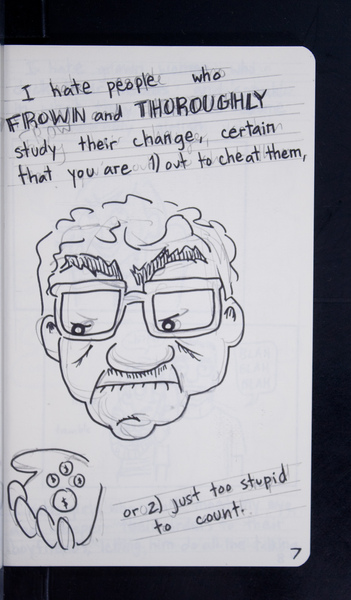 I hate people who
FROWN and THOROUGHLY
study their change, certain
that you are 1) out to cheat them,
$ $ $ $ $
or 2) just too stupid
to count.
7